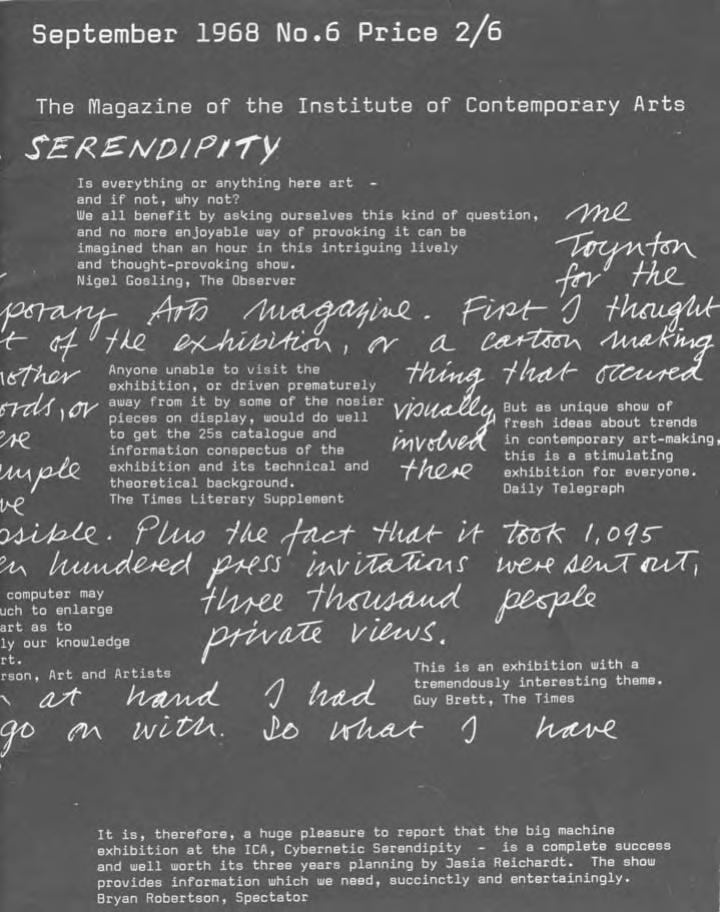 September 1968 No.6 Price 2/6
The Magazine of the Institute of Contemporary Arts
SERENDIPITY
Is everything or anything here art -
and if not, why not?
We all benefit by asking ourselves this kind of question,
and no more enjoyable way of provoking it can be
imagined than an hour in this intriguing lively
and thought-provoking show.
Nigel Gosling, The Observer
me
Toynton
for the
porary Arts magazine. First I thought
t of the exhibition, or a cartoon making
nother
ords, or
ere
ample
ve
Anyone unable to visit the
exhibition, or driven prematurely
away from it by some of the nosier
pieces on display, would do well
to get the 25s catalogue and
information conspectus of the
exhibition and its technical and
theoretical background.
The Times Literary Supplement
thing that occured
visually
involved
there
But as unique show of
fresh ideas about trends
in contemporary art-making,
this is a stimulating
exhibition for everyone.
Daily Telegraph
ossible. Plus the fact that it took 1,095
en hundered press invitations were sent out,
three thousand people
private views.
computer may
uch to enlarge
art as to
ly our knowledge
rt.
rson, Art and Artists
This is an exhibition with a
tremendously interesting theme.
Guy Brett, The Times
n at hand I had
go on with. So what I have
It is, therefore, a huge pleasure to report that the big machine
exhibition at the ICA, Cybernetic Serendipity - is a complete success
and well worth its three years planning by Jasia Reichardt. The show
provides information which we need, succinctly and entertainingly.
Bryan Robertson, Spectator